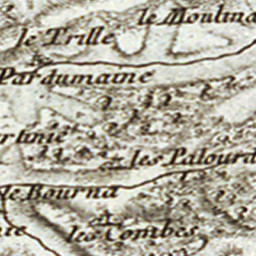 le Moulina
le Trille
Pardumaine
rtinie
les Palourd
le Bourna
les Combes